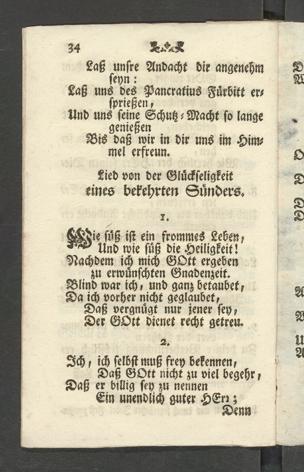 34
Laß unsre Andacht dir angenehm
seyn:
Laß uns des Pancratius Fürbitt er-
sprießen,
Und uns seine Schutz-Macht so lange
genießen
Bis daß wir in dir uns im Him-
mel erfreun.
Lied von der Glückseligkeit
eines bekehrten Sünders.
1.
Wie süß ist ein frommes Leben,
Und wie süß die Heiligkeit!
Nachdem ich mich GOtt ergeben
zu erwünschten Gnadenzeit.
Blind war ich, und ganz betaubet,
Da ich vorher nicht geglaubet,
Daß vergnügt nur jener sey,
Der GOtt dienet recht getreu.
2.
Ich, ich selbst muß frey bekennen,
Daß GOtt nicht zu viel begehr,
Daß er billig sey zu nennen
Ein unendlich guter HErr;
Denn